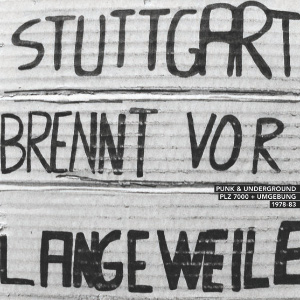 STUTTGART
BRENNT VOR
PUNK & UNDERGROUND
PLZ 7000 + UMGEBUNG
1978-83
LANGEWEILE